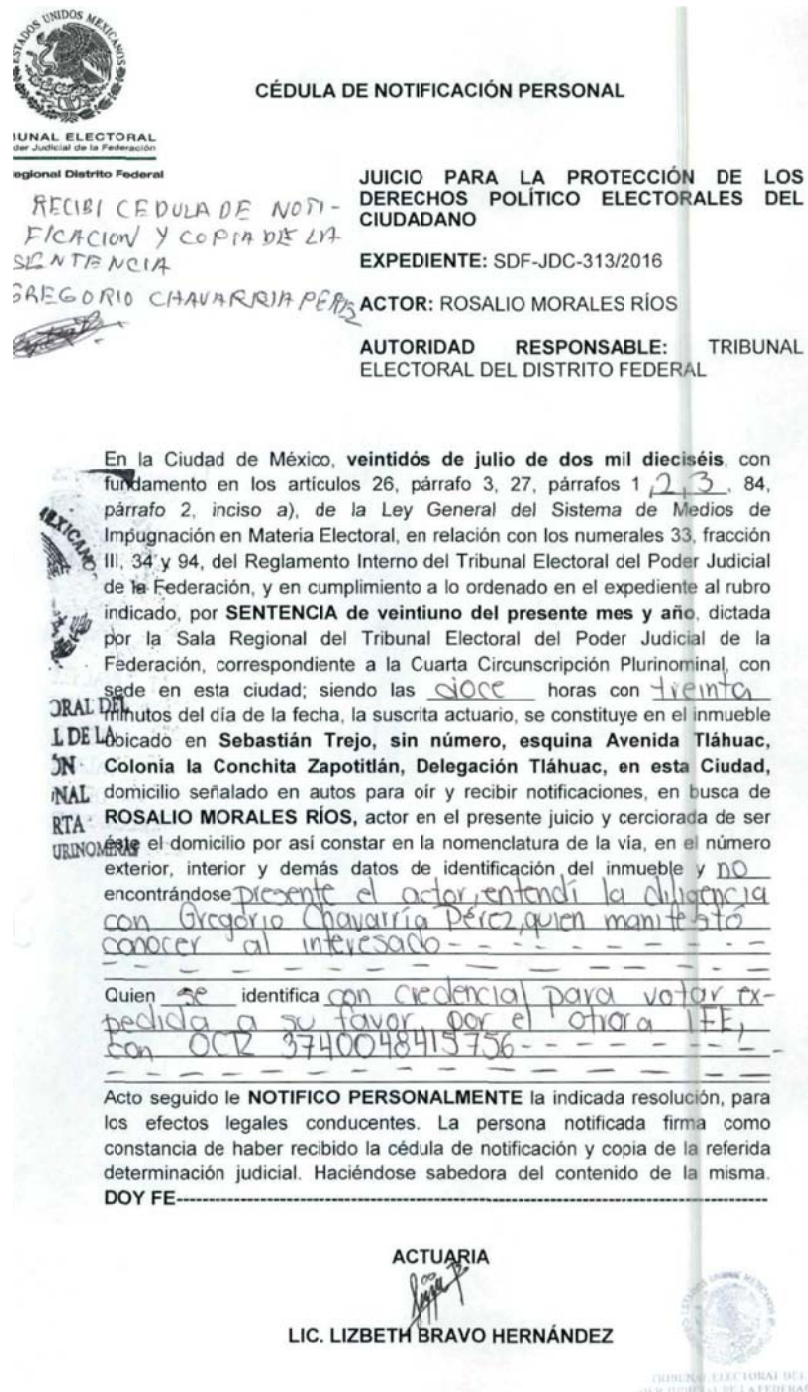 ESTADOS UNIDOS MEXICANOS
CÉDULA DE NOTIFICACIÓN PERSONAL
IUNAL ELECTORAL
der Judicial de la Federación
egional Distrito Federal
RECIBI CEDULA DE NOTI-
FICACION Y COPIA DE LA
SENTENCIA
GREGORIO CHAVARRIA PEREZ
JUICIO PARA LA PROTECCIÓN DE LOS
DERECHOS POLÍTICO ELECTORALES DEL
CIUDADANO
EXPEDIENTE: SDF-JDC-313/2016
ACTOR: ROSALIO MORALES RÍOS
AUTORIDAD RESPONSABLE: TRIBUNAL
ELECTORAL DEL DISTRITO FEDERAL
En la Ciudad de México, veintidós de julio de dos mil dieciséis, con
fundamento en los artículos 26, párrafo 3, 27, párrafos 1 ,2,3, 84,
párrafo 2, inciso a), de la Ley General del Sistema de Medios de
Impugnación en Materia Electoral, en relación con los numerales 33, fracción
III, 34 y 94, del Reglamento Interno del Tribunal Electoral del Poder Judicial
de la Federación, y en cumplimiento a lo ordenado en el expediente al rubro
indicado, por SENTENCIA de veintiuno del presente mes y año, dictada
por la Sala Regional del Tribunal Electoral del Poder Judicial de la
Federación, correspondiente a la Cuarta Circunscripción Plurinominal, con
sede en esta ciudad; siendo las doce horas con treinta
minutos del día de la fecha, la suscrita actuario, se constituye en el inmueble
ubicado en Sebastián Trejo, sin número, esquina Avenida Tláhuac,
Colonia la Conchita Zapotitlán, Delegación Tláhuac, en esta Ciudad,
domicilio señalado en autos para oír y recibir notificaciones, en busca de
ROSALIO MORALES RÍOS, actor en el presente juicio y cerciorada de ser
éste el domicilio por así constar en la nomenclatura de la vía, en el número
exterior, interior y demás datos de identificación del inmueble y no
encontrándose presente el actor, entendí la diligencia
con Gregorio Chavarría Pérez, quien manifestó
conocer al interesado - - - - - - - -
- - - - - - - - - - - - - -
Quien se identifica con credencial para votar ex-
pedida a su favor por el otrora IFE,
con OCR 3740048415756 - - - - - - -
- - - - - - - - - - - - - -
Acto seguido le NOTIFICO PERSONALMENTE la indicada resolución, para
los efectos legales conducentes. La persona notificada firma como
constancia de haber recibido la cédula de notificación y copia de la referida
determinación judicial. Haciéndose sabedora del contenido de la misma.
DOY FE-----------------------------------------------------------------
MEXICANO
ORAL DEL
L DE LA
ÓN
NAL
RTA
URINOMINAL
ACTUARIA
LIC. LIZBETH BRAVO HERNÁNDEZ
TRIBUNAL ELECTORAL DEL